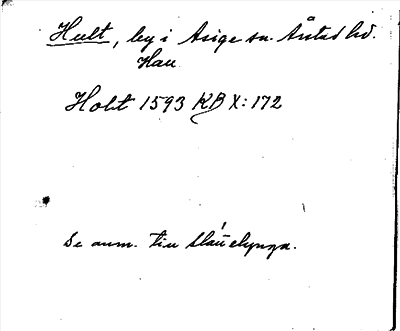 Hult, by i Asige sn. Årstad hd.
Hall
Holt 1593 KB X:172
Se anm. till Slättelynga.